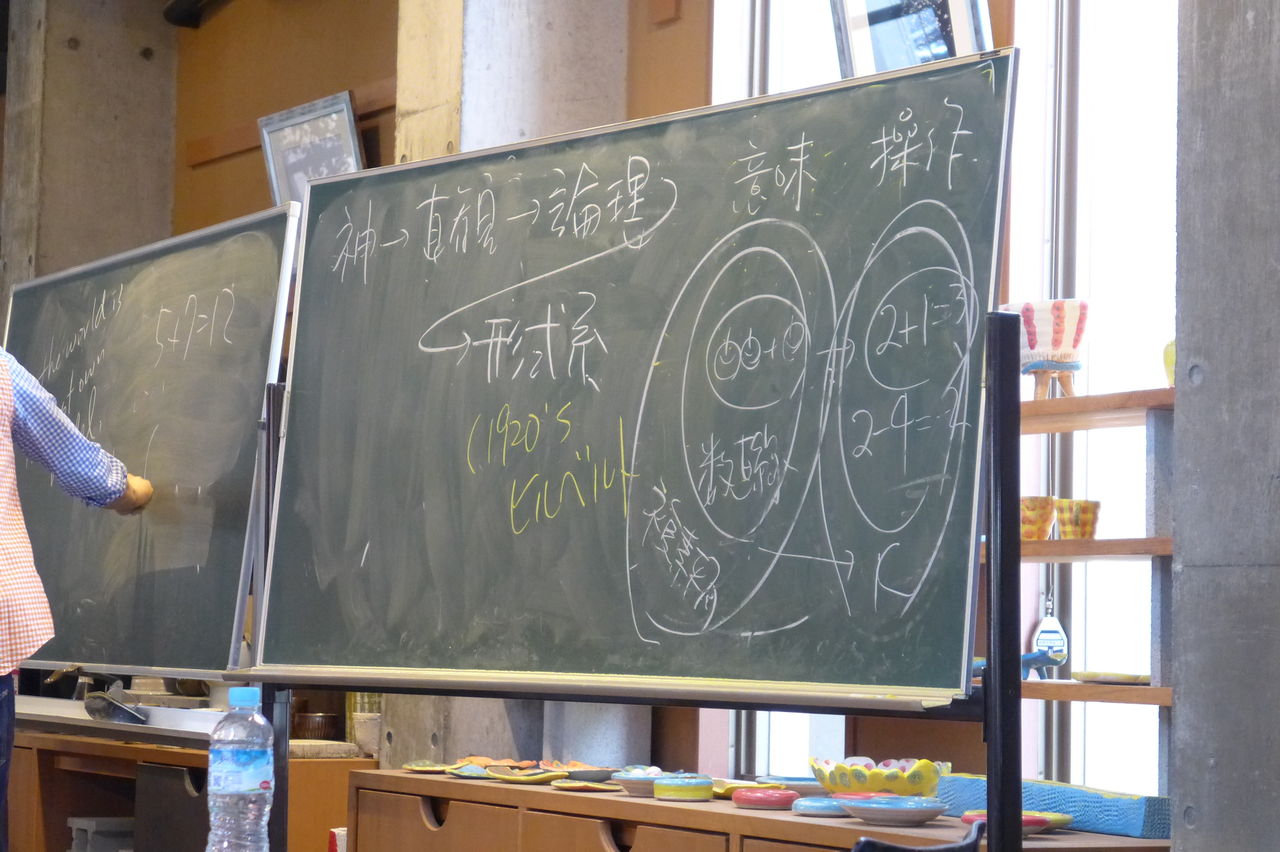 the world is
own
5+7=12
神→直観→論理
→形式系
(1920's
ヒルベルト
意味
操作
2+1=3
数直線
2-4=-2